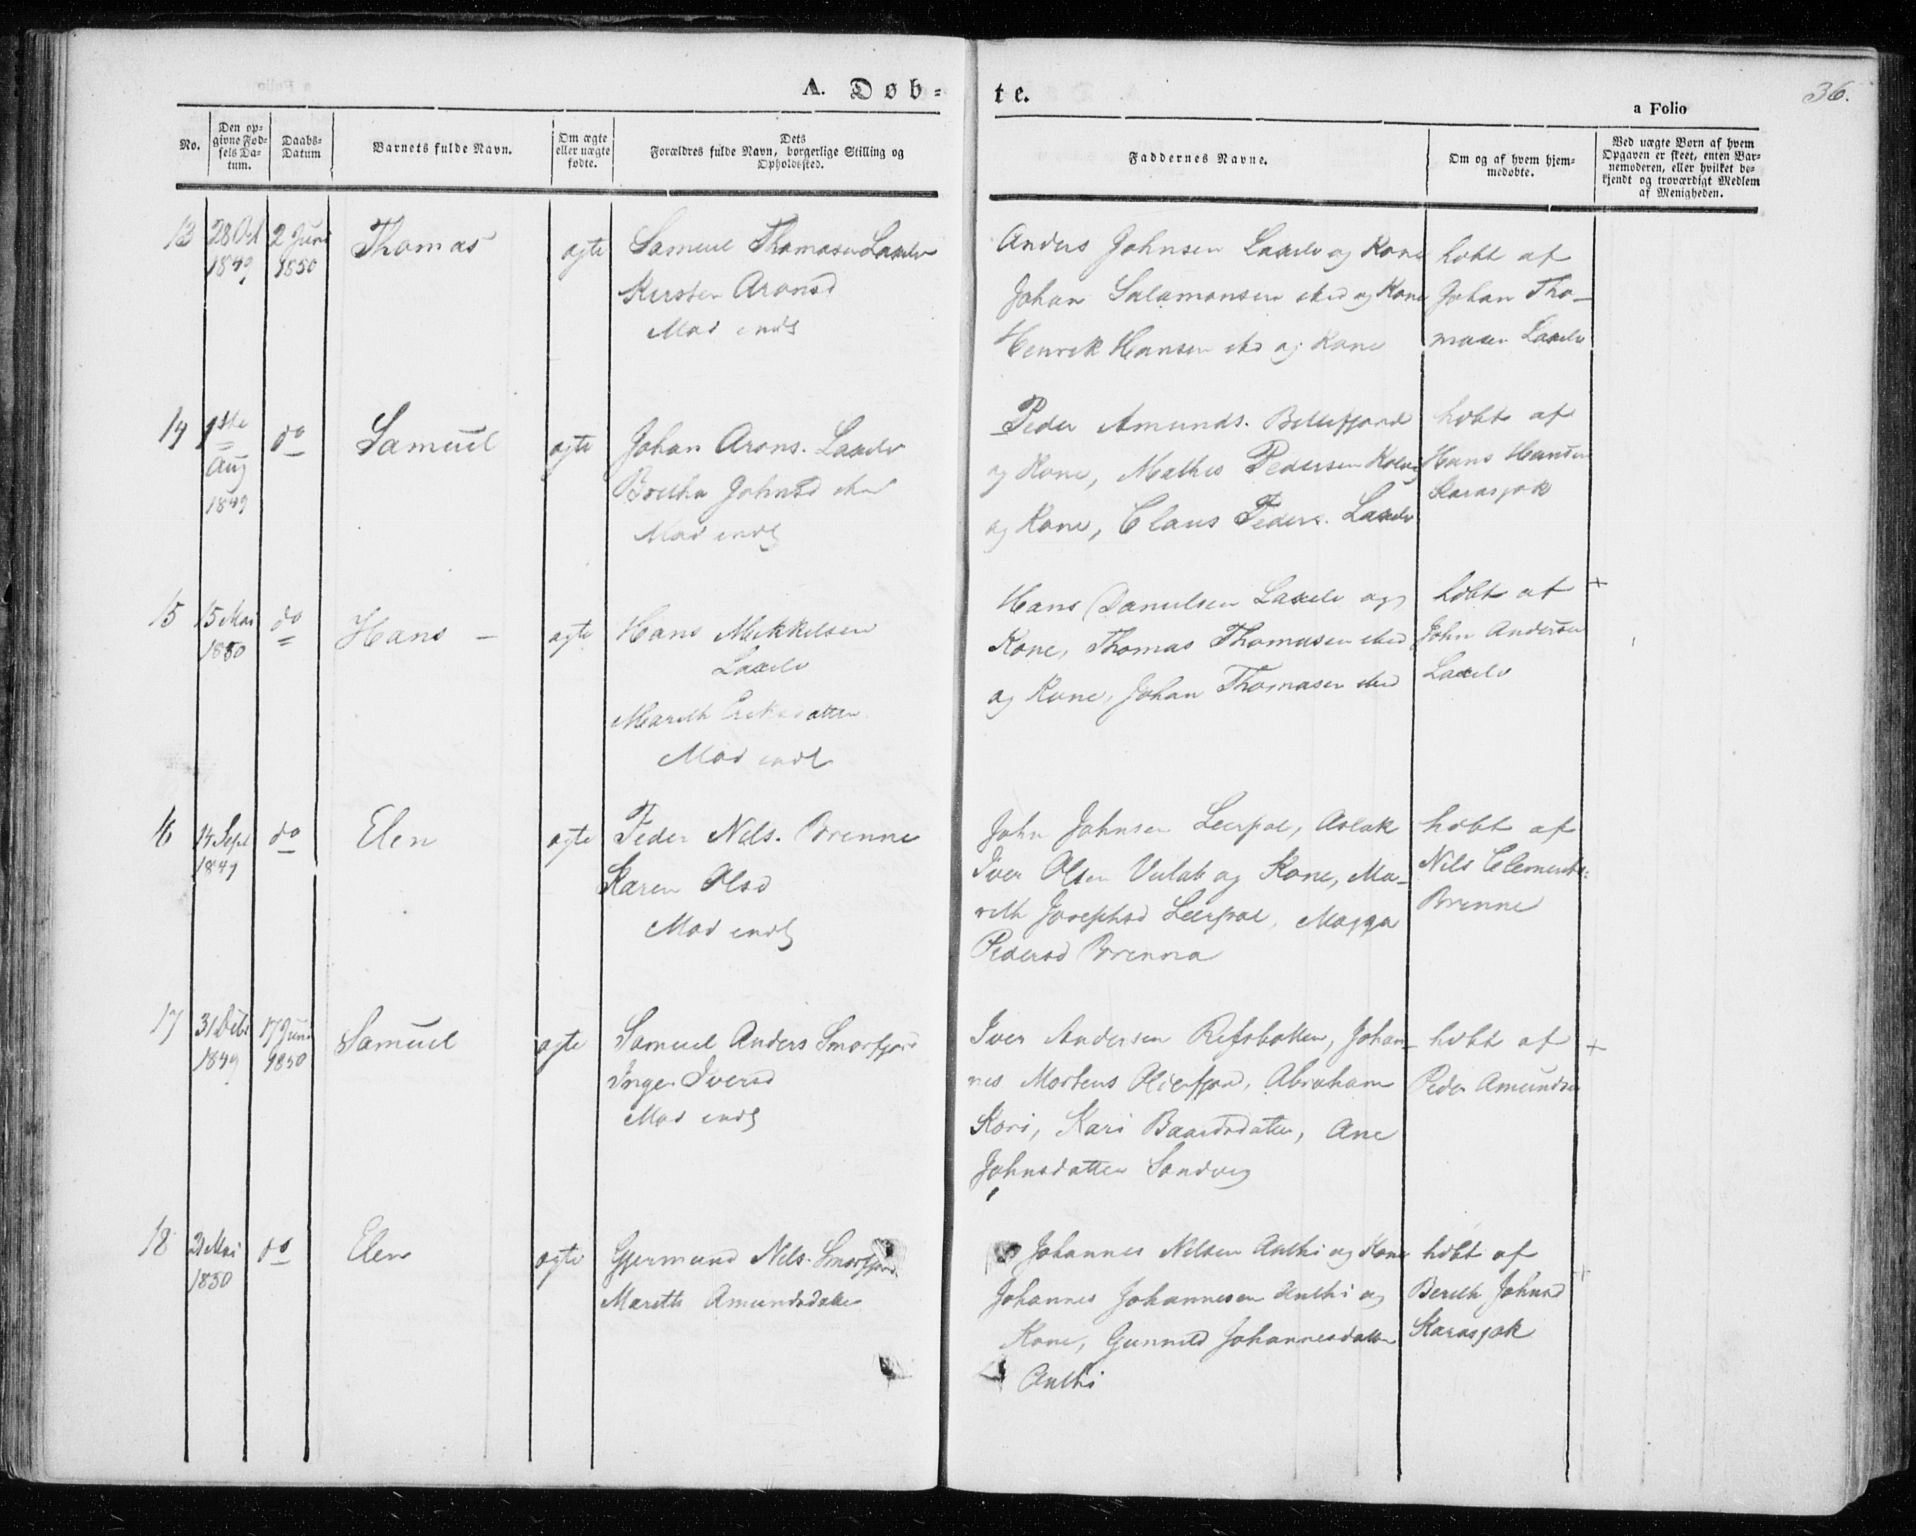 A. Døb-
te.
a Folio
36.
No.
Den op-
givne Fød-
sels Da-
tum.
Daabs-
Datum
Barnets fulde Navn.
Om ægte
eller uægte
fødte.
Dets
Forældres fulde Navn, borgerlige Stilling og
Opholdssted.
Faddernes Navne.
Om og af hvem hjem-
medøbte.
Ved uægte Børn af hvem
Opgaven er skeet, enten Bar-
nemoderen, eller hvilket be-
kjendt og troværdigt Medlem
af Menigheden.
13
28 Oct
1849
2 Juni
1850
Thomas
ægte
Samuel Thomasen Laxelv
Kirsten Aronsd
Mad indl
Anders Johnsen Laxelv og Kone
Johan Salamonsen sted og Kone
Henrik Hansen sted og Kone
hdbt af
Johan Tho-
masen Laxelv
14
1ste
Aug
1849
do
Samuel
ægte
Johan Arons. Laxelv
Bretha Johnsd sted
Mad indl
Peder Amunds. Billefjord
og Kone, Mathis Pedersen
og Kone, Claus Peders. Laxelv
hdbt af
Hans Hansen
Karasjok
15
15 Mai
1850
do
Hans -
ægte
Hans Mikkelsen
Laxelv
Mareth Eriksdatter
Mad indl
Hans Danielsen Laxelv og
Kone, Thomas Thomasen sted
og Kone, Johan Thomasen sted
hdbt af
John Andersen
Laxelv
+
16
14 Sept
1849
do
Elen
ægte
Peder Nils. Brenne
Karen Olsd
Mad indl
John Johnsen Leerpol, Aslak
Iver Olsen og Kone, Ma-
reth Josephsd Leerpol, Magga
Pedersd Brenna
hdbt af
Nils Clements.
Brenne
17
31 Debr
1849
17 Juni
1850
Samuel
ægte
Samuel Anders Smorfjord
Inger Iversd
Mad indl
Iver Andersen Refsbotten, Johan-
nes Mortens Olderfjord, Abraham
Kari Baardsdatter, Ane
Johnsdatter Sandvig
hdbt af
Peder Amundsen
+
18
21 Mai
1850
do
Elen
ægte
Gjermund Nils. Smorfjord
Mareth Amundsdatter
Johannes Nilsen Anthi og Kone
Johannes Johannesen Anthi og
Kone, Gunnild Johannesdatter
Anthi
hdbt af
Bereth Johnsd
Karasjok
+